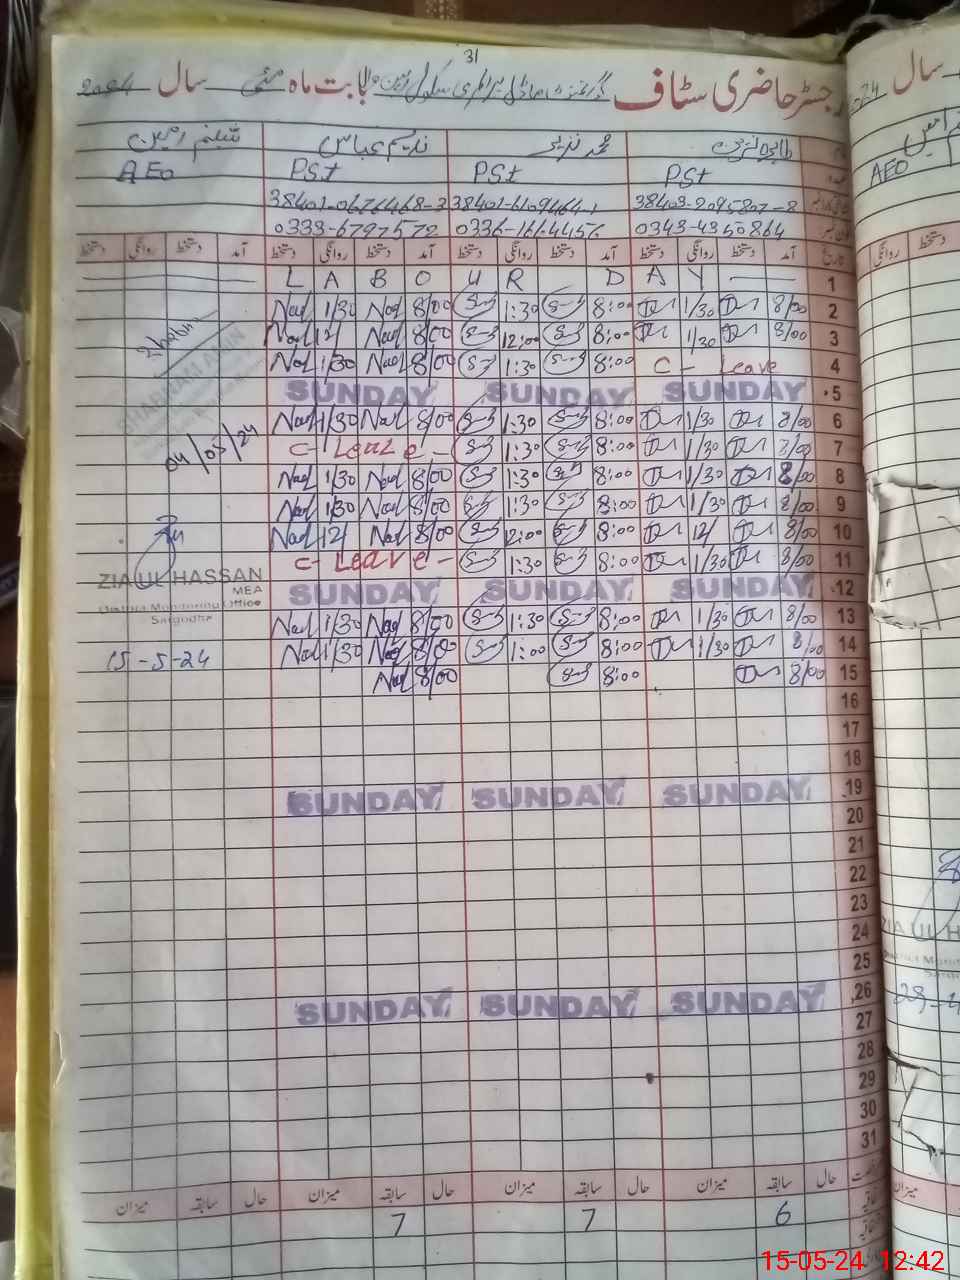 31
رجسٹر حاضری سٹاف گورنمنٹ ماڈل پرائمری سکول بابت ماہ مئی سال 2024
محمد نذیر ندیم عباس شبنم امین
PSt PSt PSt AEO
38403-2095807-8 38401-6109464-1 38401-0676468-3
0343-4350864 0336-1664456 0333-6797572
تاریخ آمد دستخط روانگی دستخط آمد دستخط روانگی دستخط آمد دستخط روانگی دستخط آمد دستخط روانگی دستخط
L A B O U R D A Y 1
Nad 1/30 Nad 8/00 1:30 8:00 1/30 8/00 2
Nad 12/ Nad 8/00 12:00 8:00 1/30 8/00 3
Nad 1/30 Nad 8/00 1:30 8:00 C- Leave 4
SUNDAY SUNDAY SUNDAY 5
Nad 1/30 Nad 8/00 1:30 8:00 1/30 8/00 6
C- Leave - 1:30 8:00 1/30 8/00 7
Nad 1/30 Nad 8/00 1:30 8:00 1/30 8/00 8
Nad 1/30 Nad 8/00 1:30 8:00 1/30 8/00 9
Nad 12/ Nad 8/00 12:00 8:00 12/ 8/00 10
C- Leave - 1:30 8:00 1/30 8/00 11
SUNDAY SUNDAY SUNDAY 12
Nad 1/30 Nad 8/00 1:30 8:00 1/30 8/00 13
Nad 1/30 Nad 8/00 1:00 8:00 1/30 8/00 14
Nad 8/00 8:00 8/00 15
16
17
18
SUNDAY SUNDAY SUNDAY 19
20
21
22
23
24
25
SUNDAY SUNDAY SUNDAY 26
27
28
29
30
31
SHABNAM AMIN
04/05/24
ZIA UL HASSAN
MEA
District Monitoring Office
Sargodha
15-5-24
حال سابقہ میزان حال سابقہ میزان حال سابقہ میزان حال سابقہ میزان
6 7 7
سال
24
AEO
دستخط روانگی
ZIA UL H
میزان
15-05-24 12:42